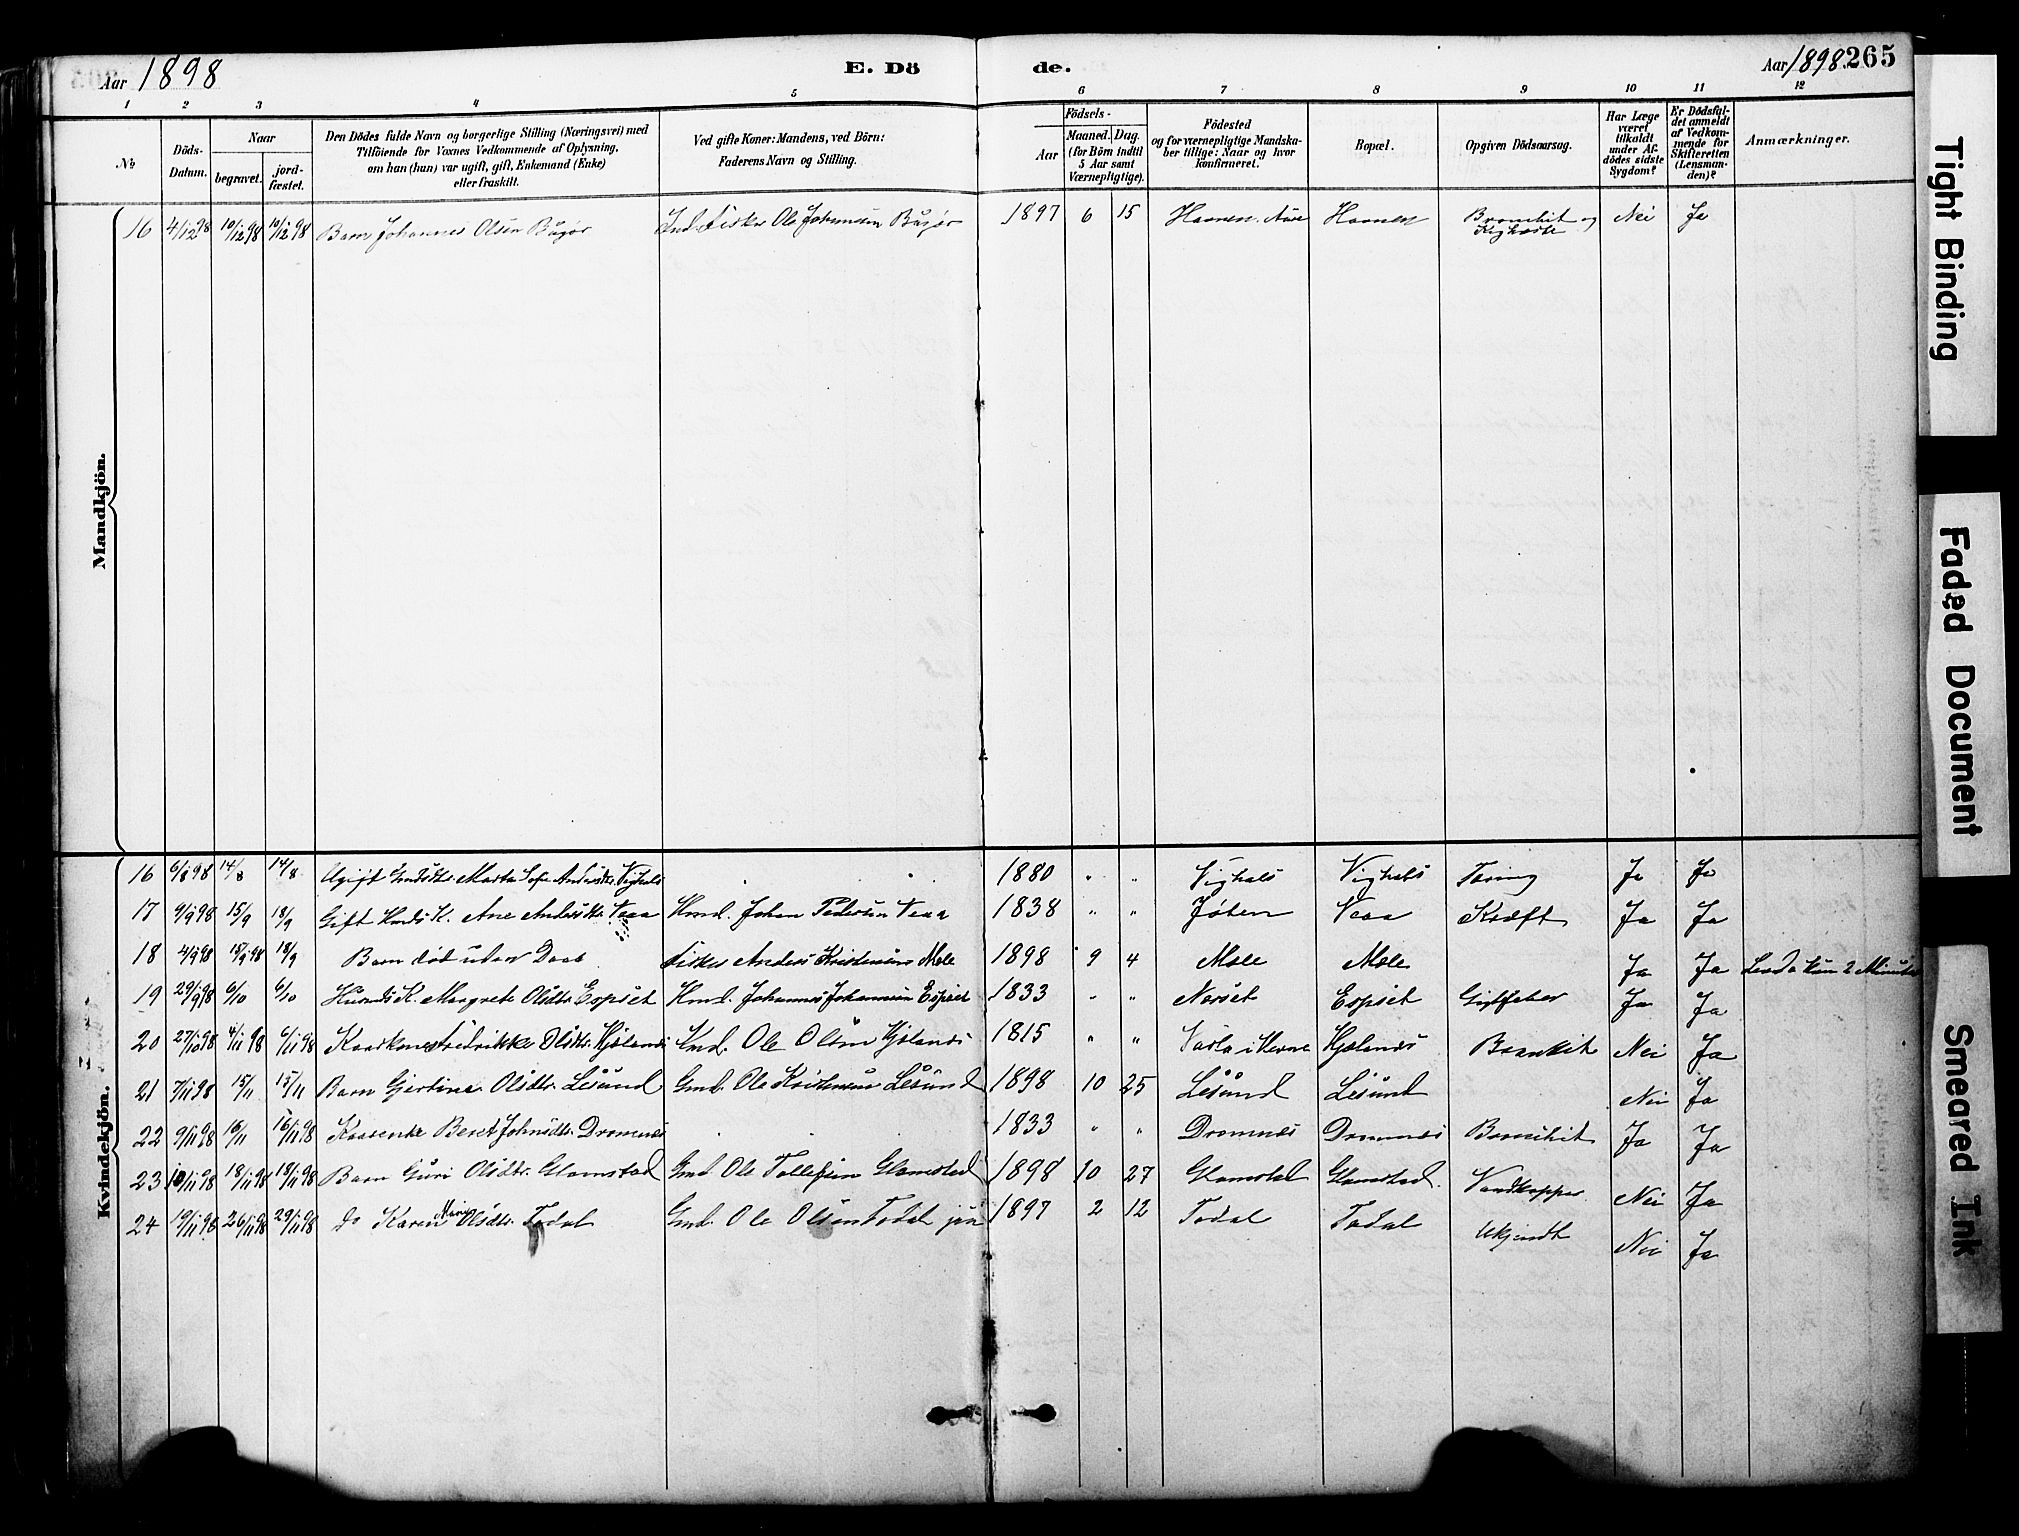 Aar 1898 E. Dö de. Aar 1898. 265
1 2 3 4 5 6 7 8 9 10 11 12
№ Döds-Datum. Naar begravet. jord-fæstet. Den Dödes fulde Navn og borgerlige Stilling (Næringsvei) med Tilföiende for Voxnes Vedkommende af Oplysning, om han (hun) var ugift, gift, Enkemand (Enke) eller fraskilt. Ved gifte Koner: Mandens, ved Börn: Faderens Navn og Stilling. Födsels- Aar Maaned. Dag. (for Börn indtil 5 Aar samt Værnepligtige). Födested og for værnepligtige Mandska-ber tillige: Naar og hvor konfirmeret. Bopæl. Opgiven Dödsaarsag. Har Læge været tilkaldt under Af-dödes sidste Sygdom? Er Dödsfal-det anmeldt af Vedkom-mende for Skifteretten (Lensman-den)? Anmærkninger.
Mandkjön.
16 4/12 98 10/12 98 10/12 98 Barn Johannes Olsen Bugør Fisker Ole Johansen Bugør 1897 6 15 Havnen Aure Havnen Bronchit og Kighoste Nei Ja
Kvindekjön.
16 6/8 98 14/8 14/8 Ugift Marta Sofie Andersdtr. Vighals 1880 " " Vighals Vighals Tæring Ja Ja
17 9/9 98 15/9 18/9 Gift Kmds K. Ane Andersdtr. Veaa Kmd. Johan Pedersen Veaa 1838 " " Jøten Veaa Kræft Ja Ja
18 4/9 98 15/9 98 18/9 Barn død uden Daab Fisker Anders Kristensen Mele 1898 9 4 Mele Mele Ja Ja Levde kun 2 Minuter
19 29/9 98 6/10 6/10 Husmds K. Margrete Olsdtr. Espset Hmd. Johannes Johansen Espset 1833 " " Nerset Espset Gigtfeber Ja Ja
20 27/10 98 4/11 98 6/11 98 Kaarkone Fredrikke Olsdtr. Hjelmnes Kmd. Ole Olsen Hjelmnes 1815 " " i Hevne Hjelmnes Bronkit Nei Ja
21 7/11 98 15/11 15/11 Barn Gjertine Olsdtr. Lesund Gmd. Ole Kristensen Lesund 1898 10 25 Lesund Lesund Nei Ja
22 9/11 98 16/11 16/11 98 Kaarenke Beret Johnsdtr. Dromnes 1833 " " Dromnes Dromnes Bronchit Ja Ja
23 10/11 98 18/11 98 18/11 98 Barn Guri Olsdtr. Glamstad Gmd. Ole Tollefsen Glamstad 1898 10 27 Glamstad Glamstad. Vandkopper Nei Ja
24 19/11 98 26/11 98 29/11 98 do Karen Marie Olsdtr. Todal Gmd. Ole Olsen Todal jun 1897 2 12 Todal Todal Ukjendt Nei Ja
Tight Binding
Faded Document
Smeared Ink